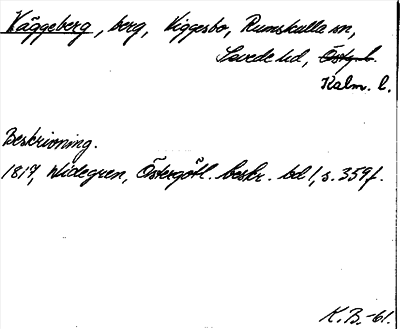 Väggeberg, berg, Viggesbo, Rumskulla sn,
Sevede hd, Östg. l.
Kalm. l.
Beskrivning.
1817, Widegren, Östergötl. beskr. bd 1, s. 359f.
K.B.-61.